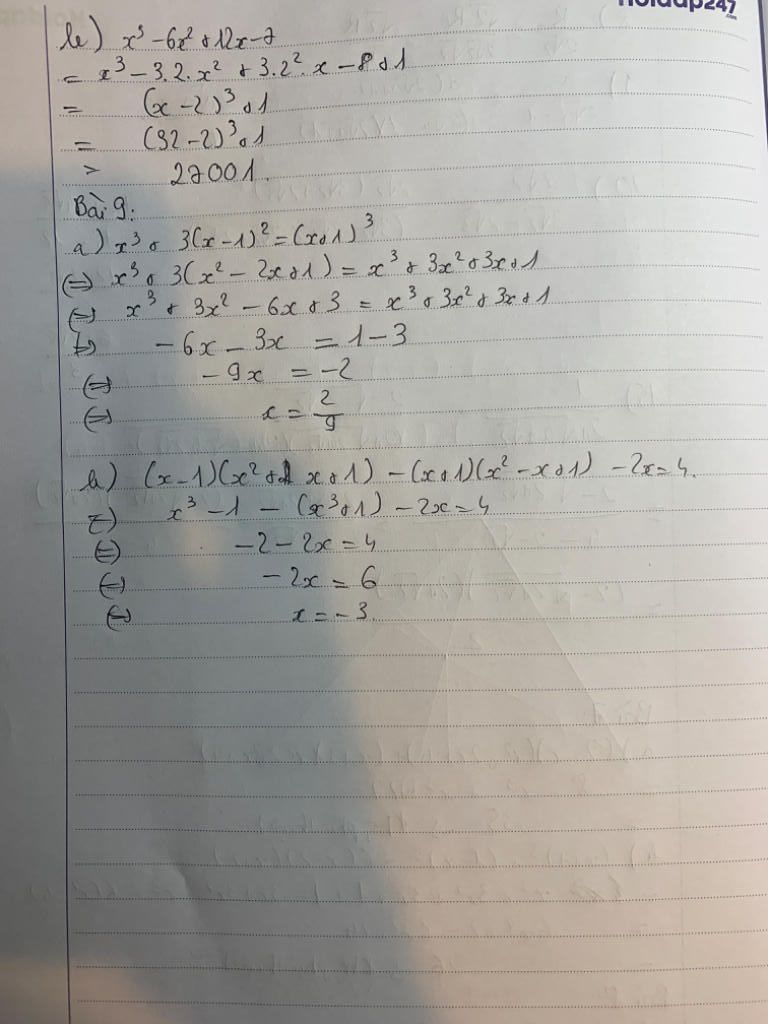 hoidap247
.com
b) x³ - 6x² + 12x - 7
= x³ - 3.2.x² + 3.2².x - 8 + 1
= (x - 2)³ + 1
= (32 - 2)³ + 1
= 27001.
Bài 9:
a) x³ + 3(x - 1)² = (x + 1)³
(=) x³ + 3(x² - 2x + 1) = x³ + 3x² + 3x + 1
(=) x³ + 3x² - 6x + 3 = x³ + 3x² + 3x + 1
(=) - 6x - 3x = 1 - 3
(=) - 9x = -2
(=) x = 2/9
b) (x - 1)(x² + x + 1) - (x + 1)(x² - x + 1) - 2x = 4.
(=) x³ - 1 - (x³ + 1) - 2x = 4
(=) - 2 - 2x = 4
(=) - 2x = 6
(=) x = - 3.